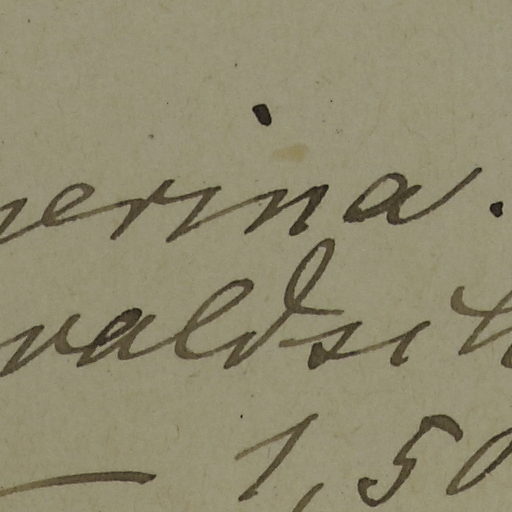 nerina.
valdsik
— 1,50